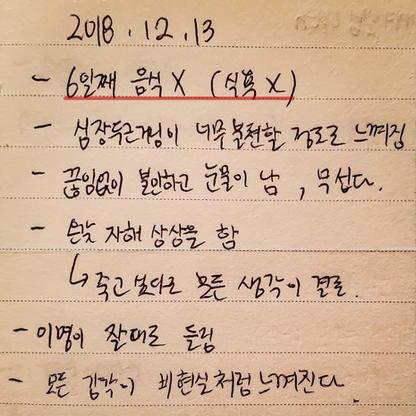 2018.12.13
- 6일째 음식 X (식욕 X)
- 심장두근거림이 너무 불편할 정도로 느껴짐
- 끊임없이 불안하고 눈물이 남, 무섭다.
- 온갖 자해 상상을 함
↳ 죽고 모든 생각이 결론.
- 이명이 들림
- 모든 감각이 비현실처럼 느껴진다.